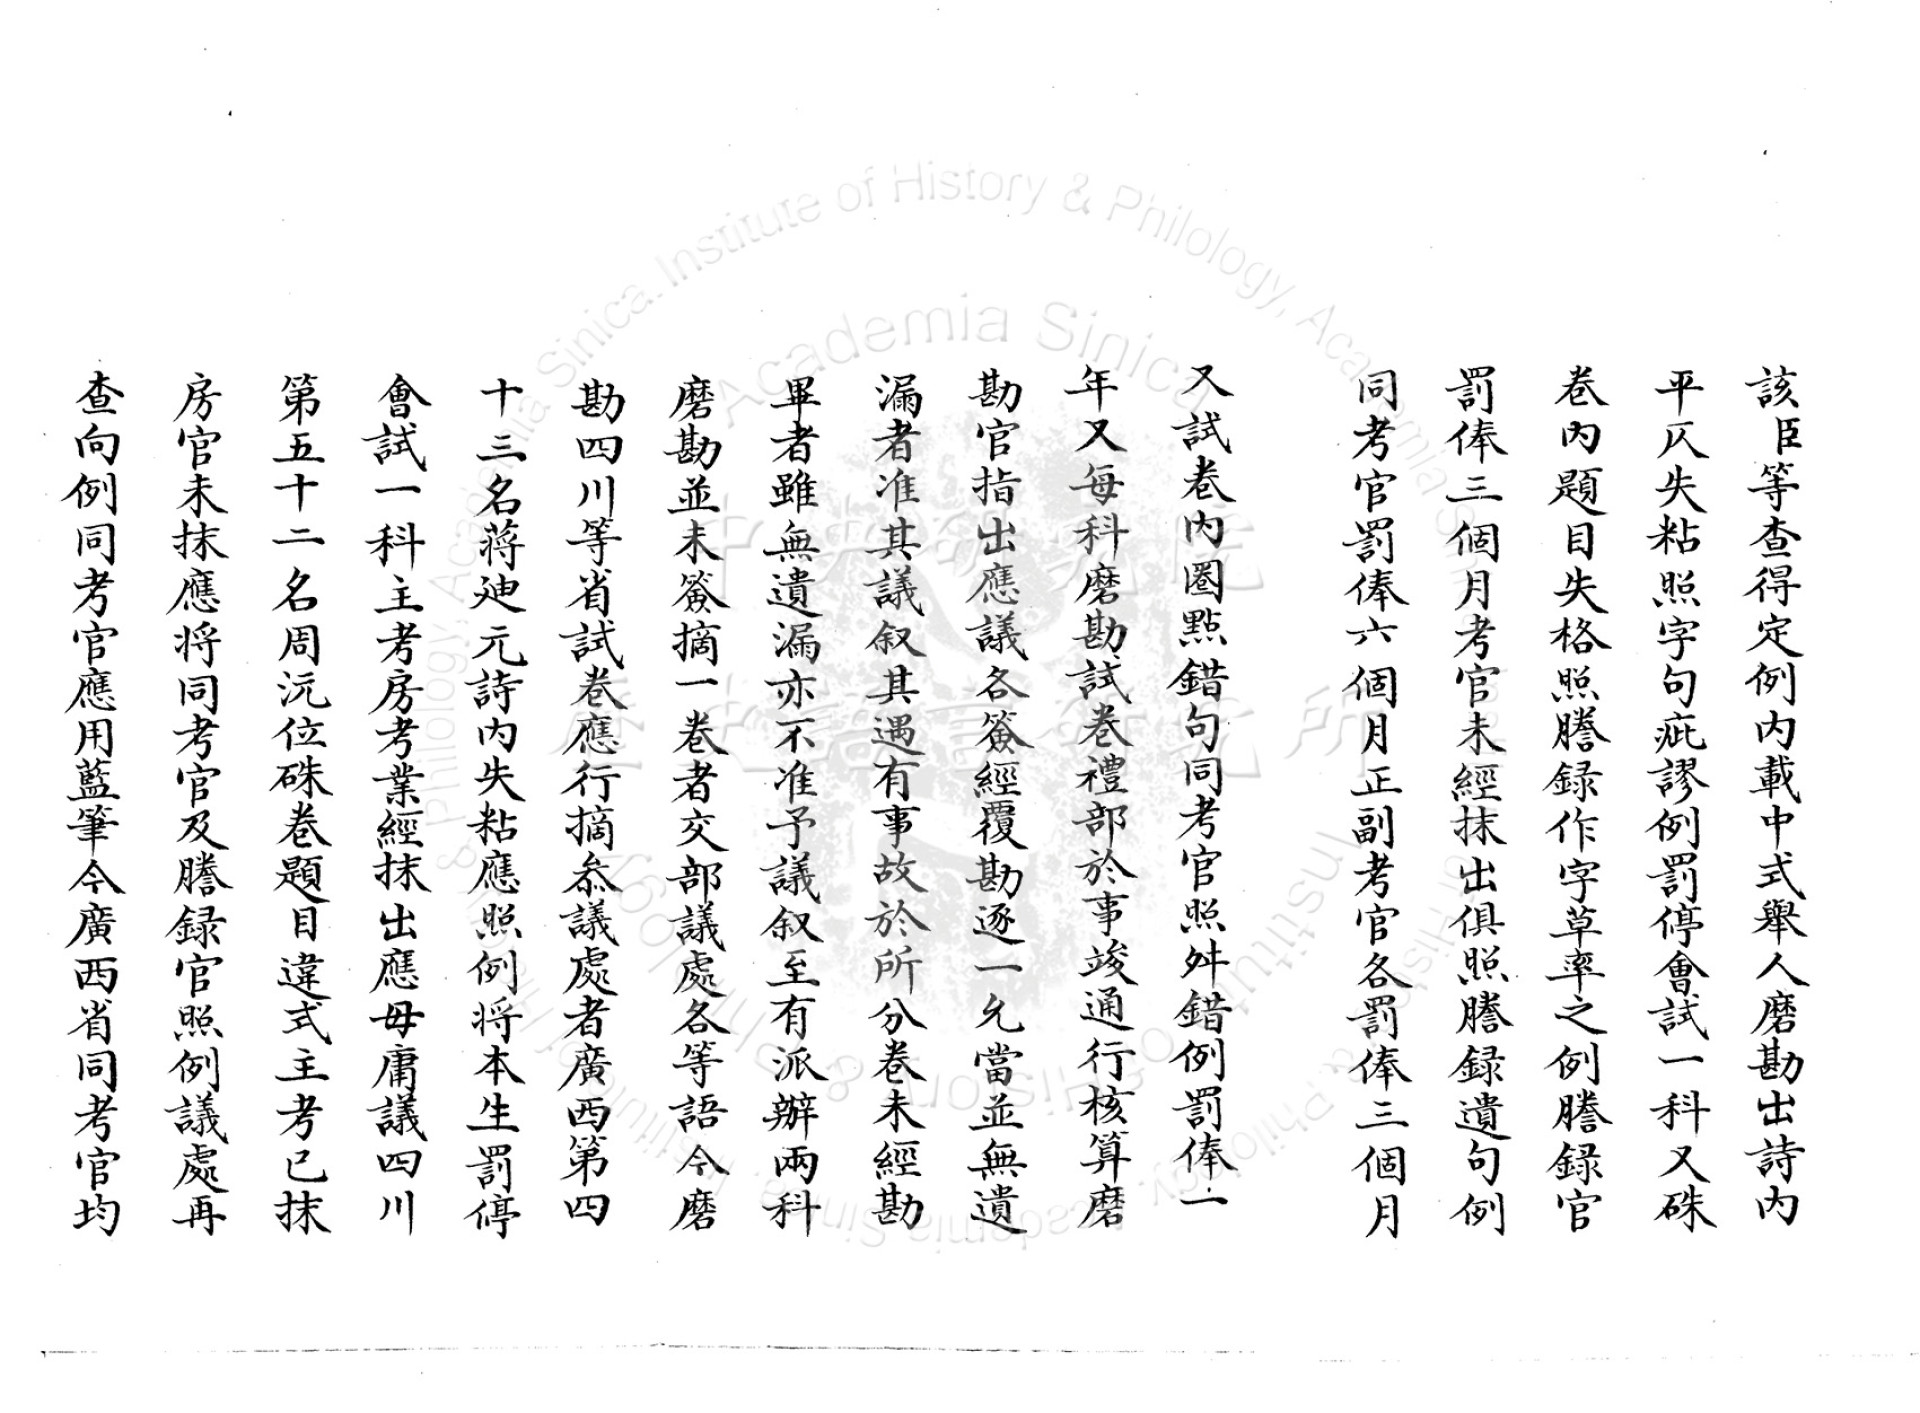 該臣等查得定例內載中式舉人磨勘出詩內
平仄失粘照字句疵謬例罰停會試一科又硃
卷內題目失格照謄錄作字草率之例謄錄官
罰俸三個月考官未經抹出俱照謄錄遺句例
同考官罰俸六個月正副考官各罰俸三個月
又試卷內圈點錯句同考官照舛錯例罰俸一
年又每科磨勘試卷禮部於事竣通行核算磨
勘官指出應議各簽經覆勘逐一允當並無遺
漏者准其議叙其遇有事故於所分卷未經勘
畢者雖無遺漏亦不准予議叙至有派辦兩科
磨勘並未簽摘一卷者交部議處各等語今磨
勘四川等省試卷應行摘叅議處者廣西第四
十三名蔣廸元詩內失粘應照例將本生罰停
會試一科主考房考業經抹出應毋庸議四川
第五十二名周沅位硃卷題目違式主考已抹
房官未抹應將同考官及謄錄官照例議處再
查向例同考官應用藍筆今廣西省同考官均
Academia Sinica
中央研究院
歷史語言研究所
Institute of History & Philology, Academia Sinica